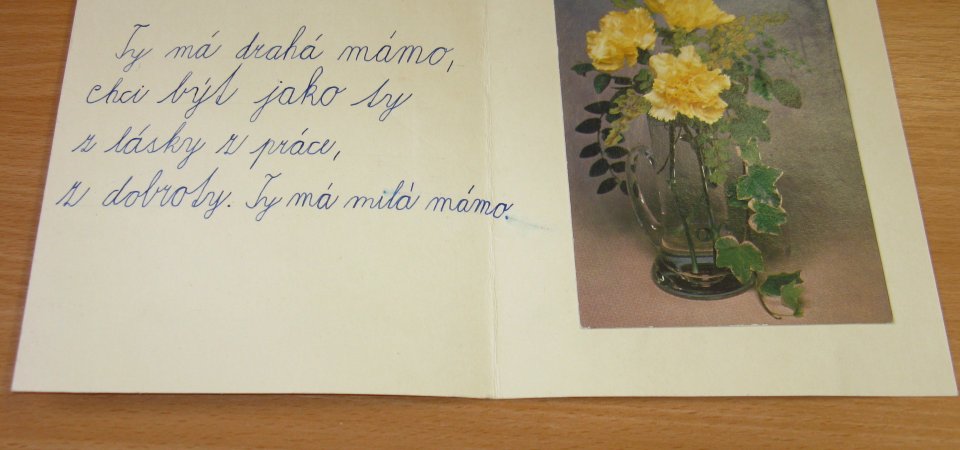 Ty má drahá mámo,
chci být jako ty
z lásky z práce,
z dobroty. Ty má milá mámo.